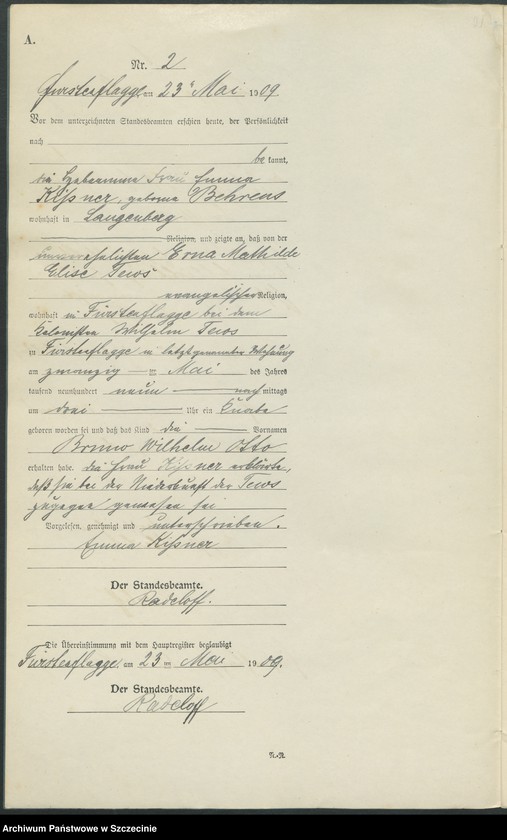 A.
Nr. 2
Fürstenflagge am 23ᵗ Mai 1909
Vor dem unterzeichneten Standesbeamten erschien heute, der Persönlichkeit
nach
be kannt,
die Hebamme Frau Emma
Kißner, geborne Behrens
wohnhaft in Langenberg
Religion, und zeigte an, daß von der
unverehelichten Erna Mathilde
Elise Tews
evangelischer Religion,
wohnhaft in Fürstenflagge bei dem
Kolonisten Wilhelm Tews
zu Fürstenflagge in letztgenannter Wohnung
am zwanzig ten Mai des Jahres
tausend neunhundert neun nach mittags
um drei Uhr ein Knabe
geboren worden sei und daß das Kind die Vornamen
Bruno Wilhelm Otto
erhalten habe. die Frau Kißner erklärte,
daß sie bei der Niederkunft der Tews
zugegen gewesen sei
Vorgelesen, genehmigt und unterschrieben.
Emma Kißner
Der Standesbeamte.
Radeloff.
Die Übereinstimmung mit dem Hauptregister beglaubigt
Fürstenflagge am 23 ten Mai 1909.
Der Standesbeamte.
Radeloff
Archiwum Państwowe w Szczecinie